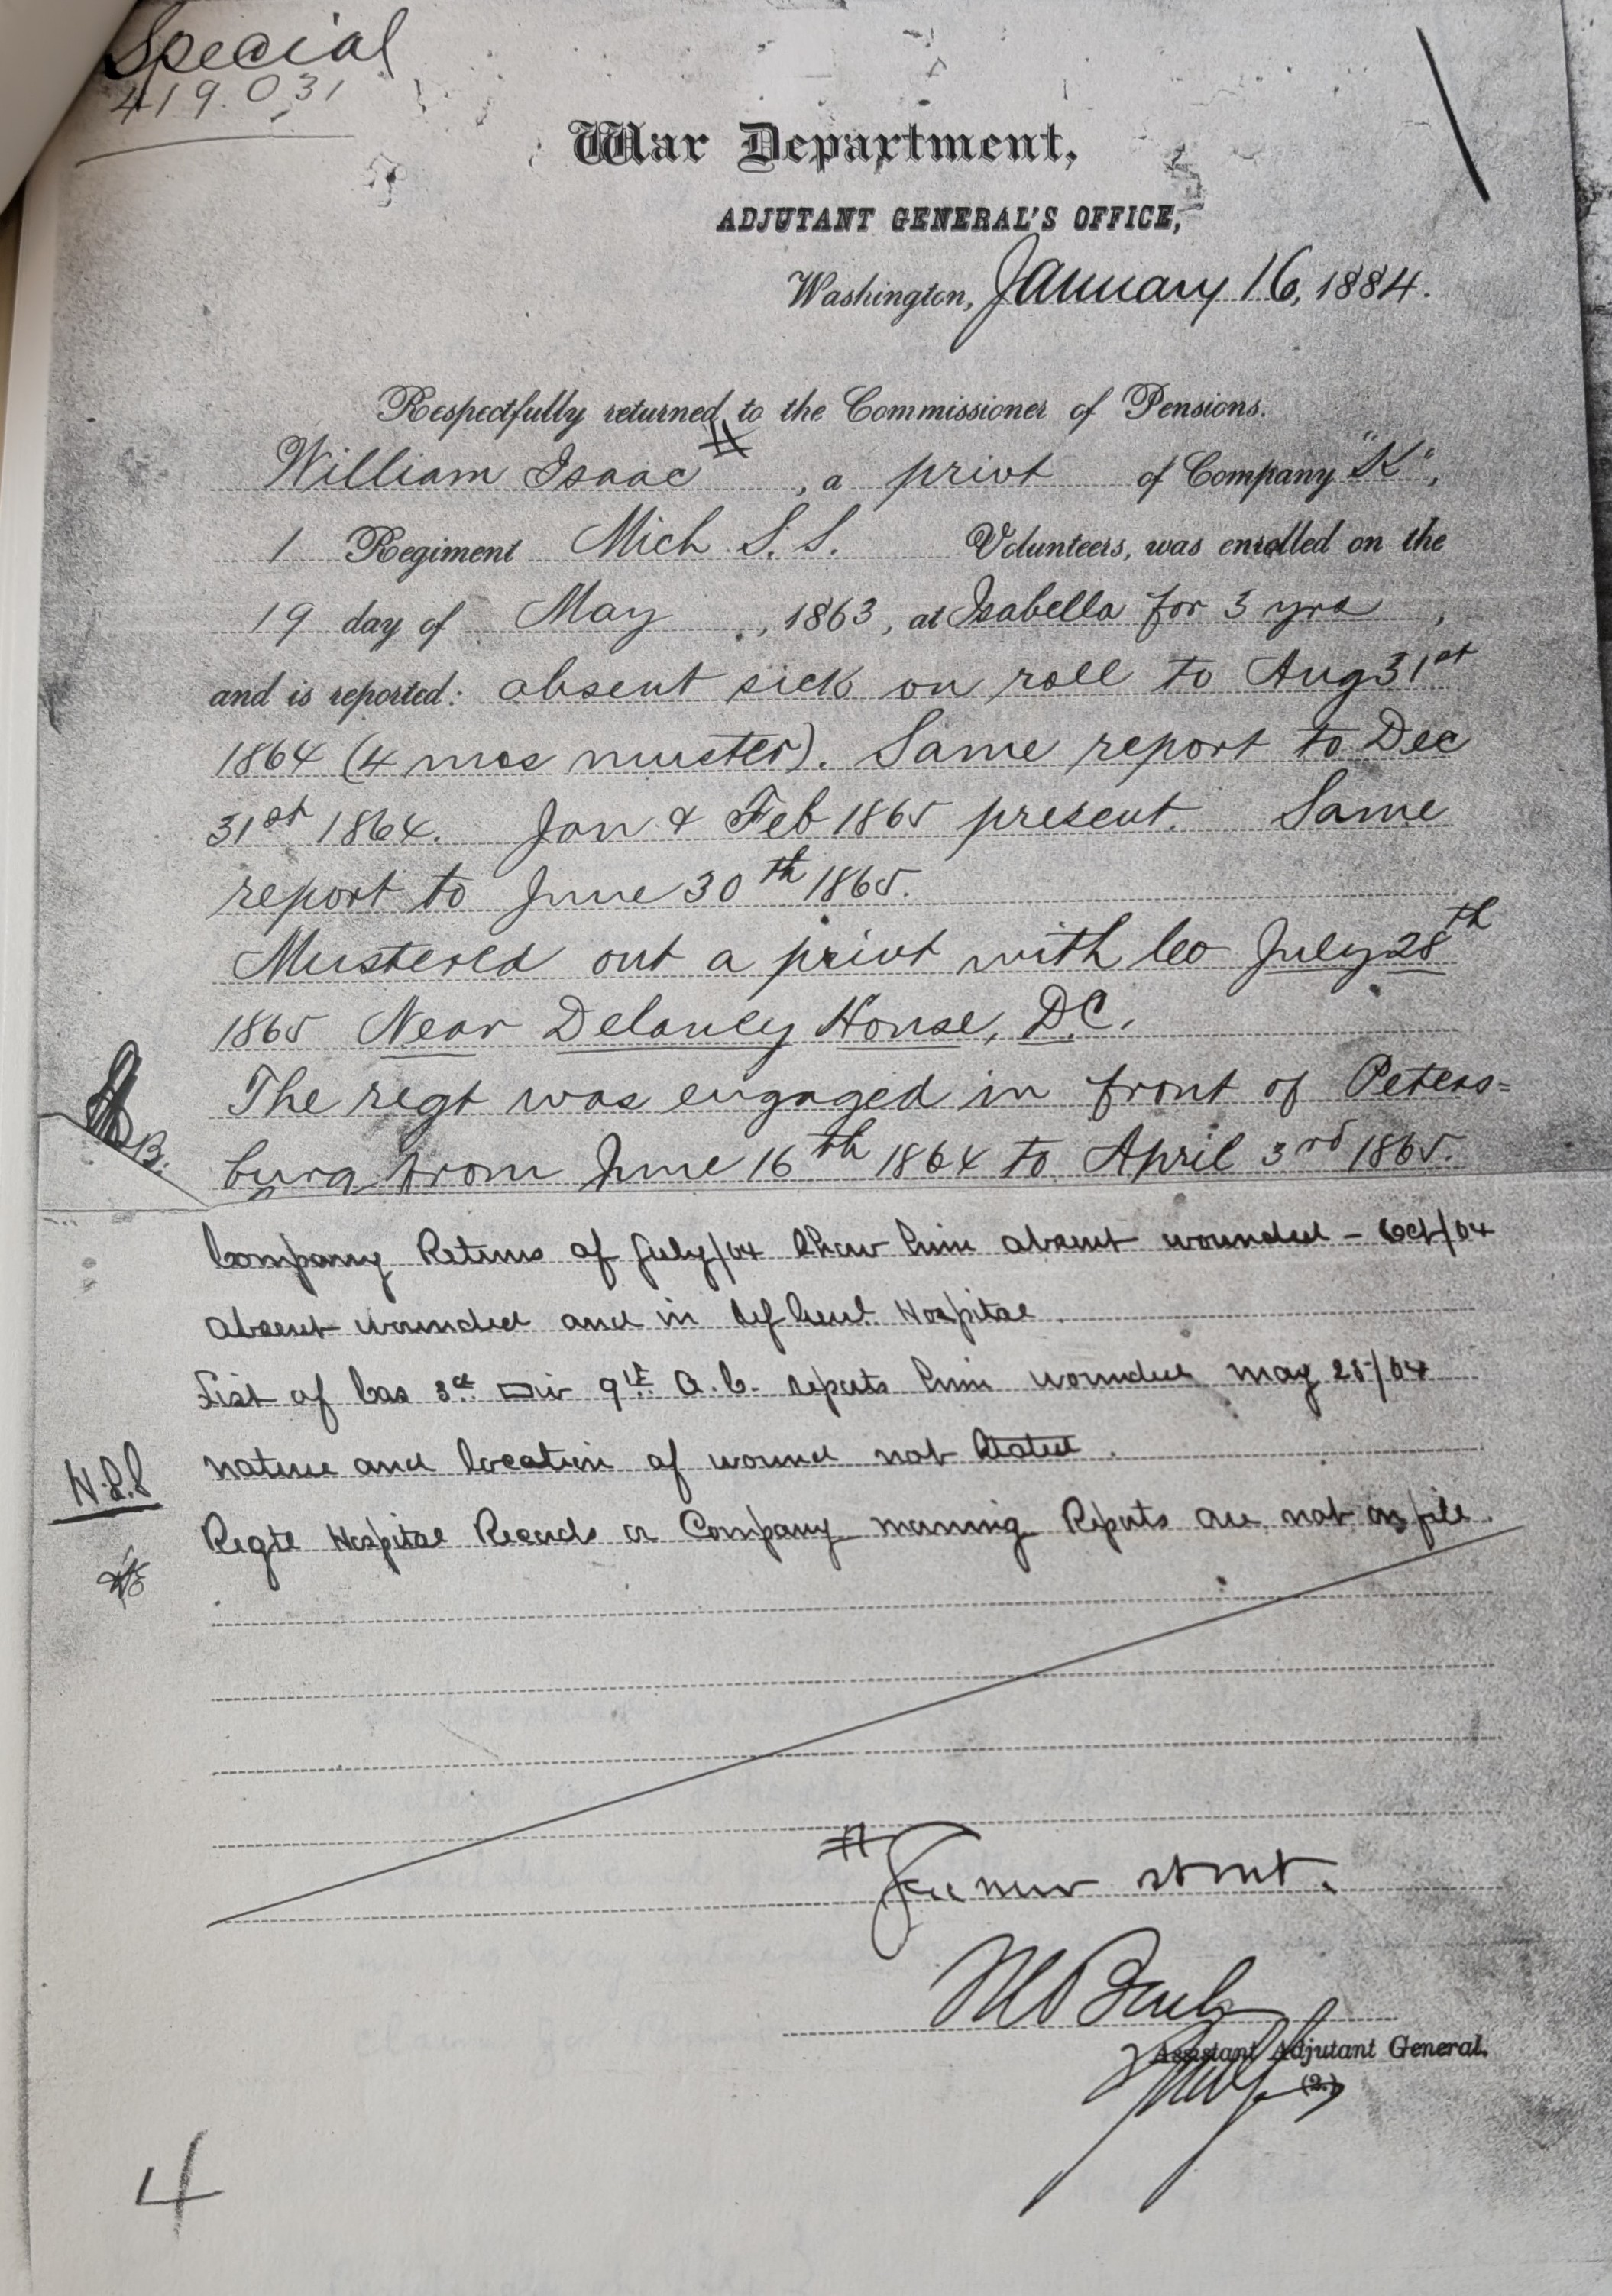 Special
419.031
War Department,
ADJUTANT GENERAL'S OFFICE,
Washington, January 16, 1884.
Respectfully returned to the Commissioner of Pensions.
William Isaac #, a privt of Company "K",
1 Regiment Mich S. S. Volunteers, was enrolled on the
19 day of May, 1863, at Isabella for 3 yrs,
and is reported: absent sick on roll to Aug 31st
1864 (4 mos muster). Same report to Dec
31st 1864. Jan & Feb 1865 present. Same
report to June 30th 1865.
Mustered out a privt with Co July 28th
1865 Near Delaney House, D.C.
The regt was engaged in front of Peters=
burg from June 16th 1864 to April 3rd 1865.
B.
Company Returns of July/64 Show him absent wounded - Oct/64
absent wounded and in Genl. Hospital
List of Cas 3rd Div 9th A.C. reports him wounded May 25/64
nature and location of wound not Stated.
Regtl Hospital Records or Company morning Reports are not on file.
#
Assistant Adjutant General.
(2.)
4